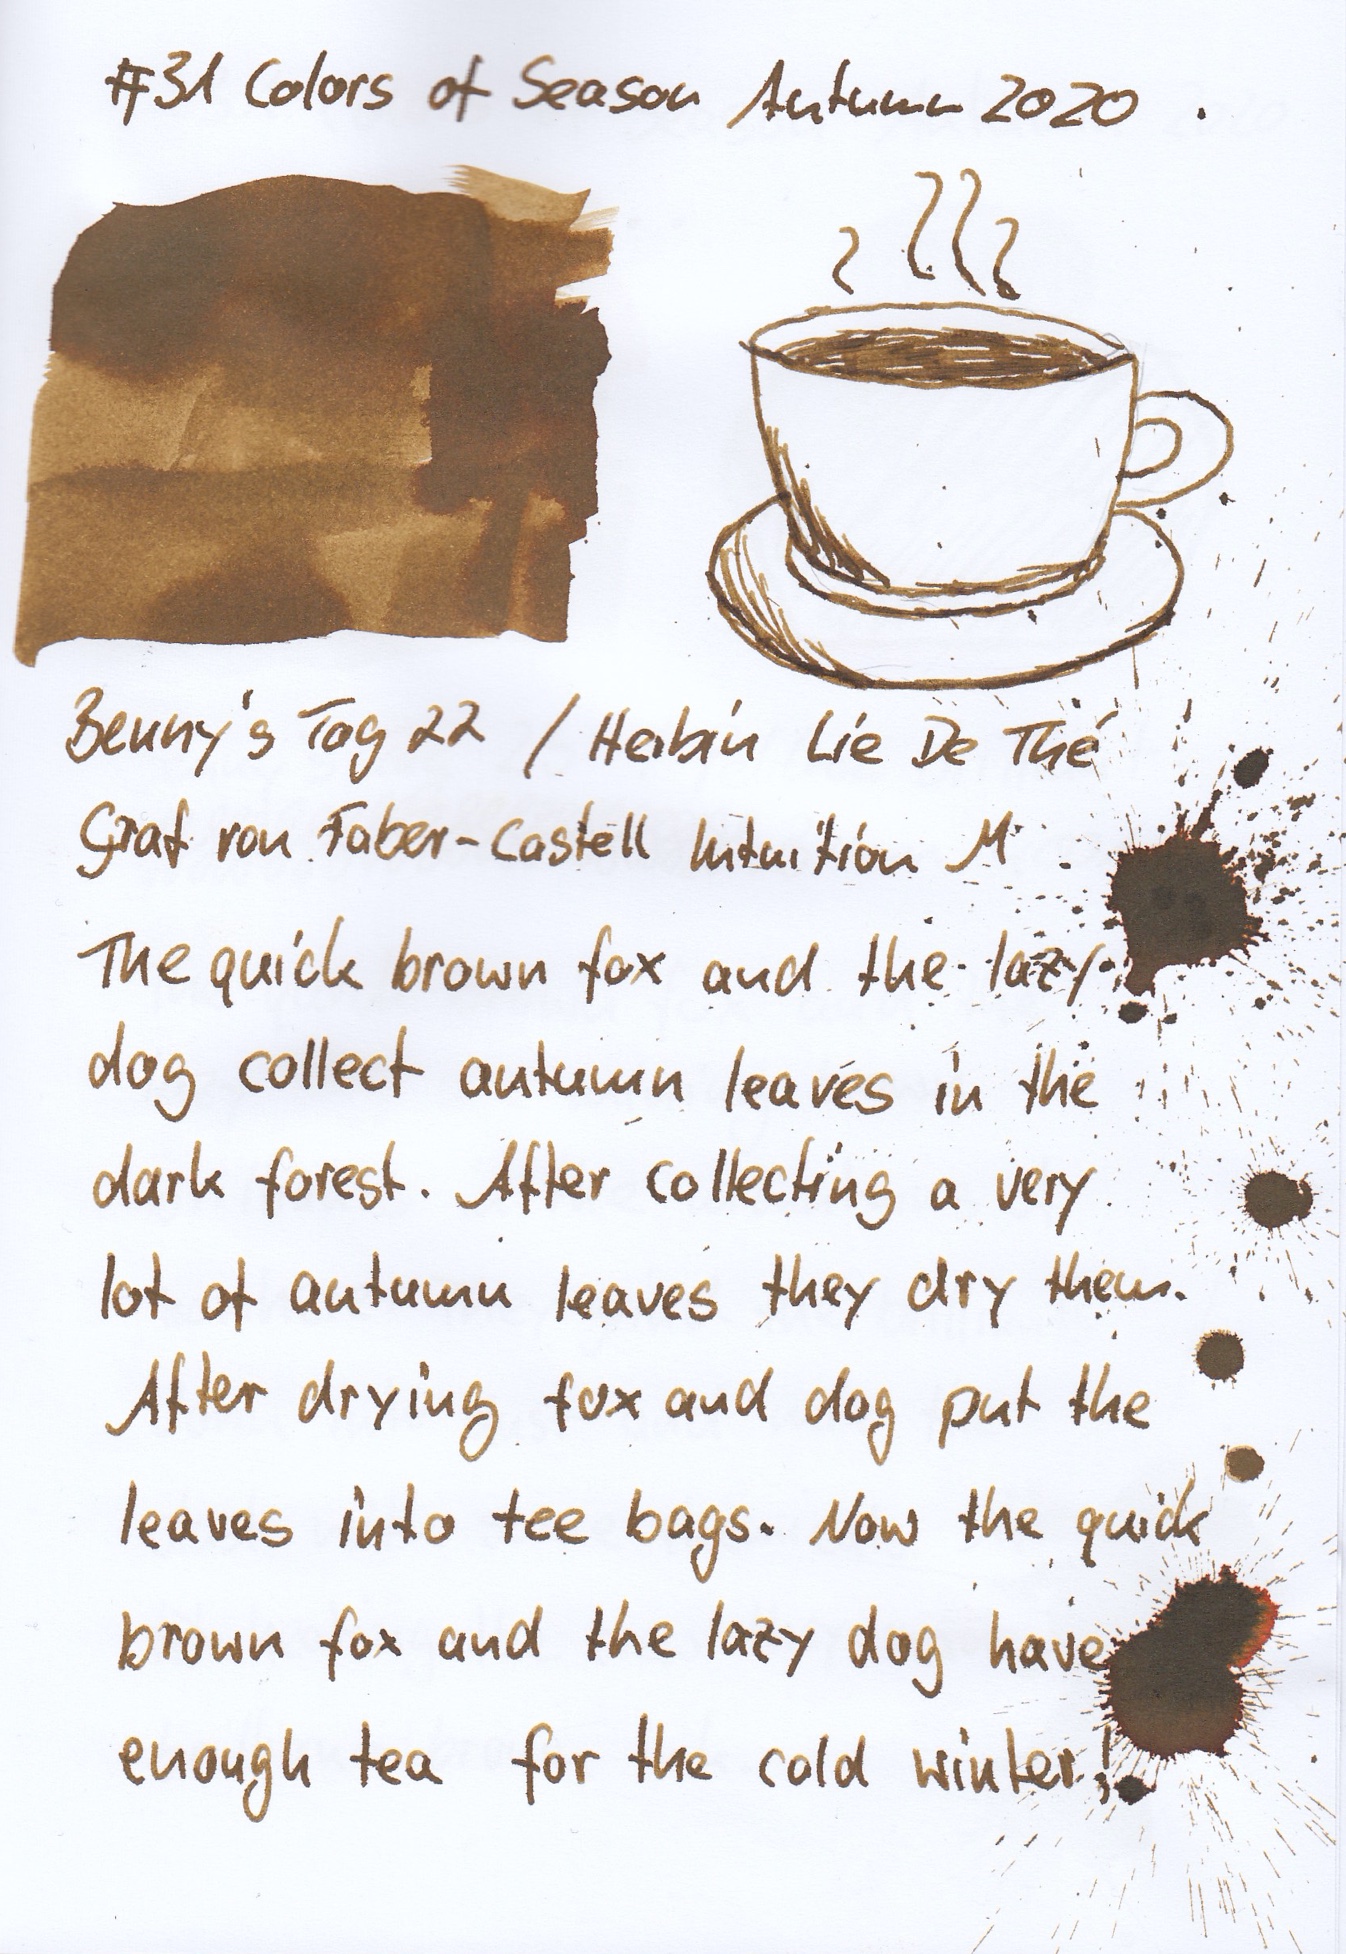 #31 Colors of Season Autumn 2020
Benny's Tag 22 / Herbin Lie De Thé
Graf von Faber-Castell Intuition M
The quick brown fox and the lazy
dog collect autumn leaves in the
dark forest. After collecting a very
lot of autumn leaves they dry them.
After drying fox and dog put the
leaves into tee bags. Now the quick
brown fox and the lazy dog have
enough tea for the cold winter!